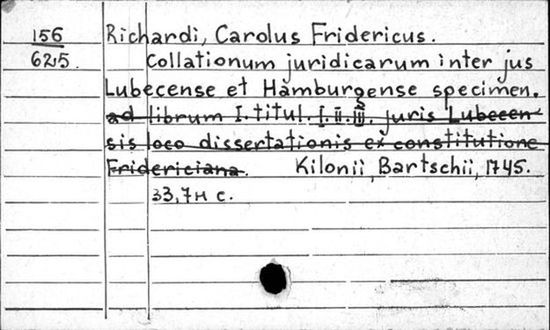 156 Richardi, Carolus Fridericus.
625. Collationum juridicarum inter jus
Lubecense et Hamburgense specimen.
ad librum I. titul. I. II. III. juris Lubecen
sis loco dissertationis ex constitutione
Fridericiana. Kilonii, Bartschii, 1745.
33, 7н с.